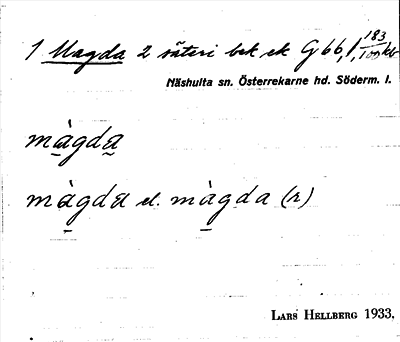 1 Magda 2 säteri bek ek G 66,1, 183/100 kb
Näshulta sn. Österrekarne hd. Söderm. l.
màgda
màgda el. màgda (r)
LARS HELLBERG 1933.